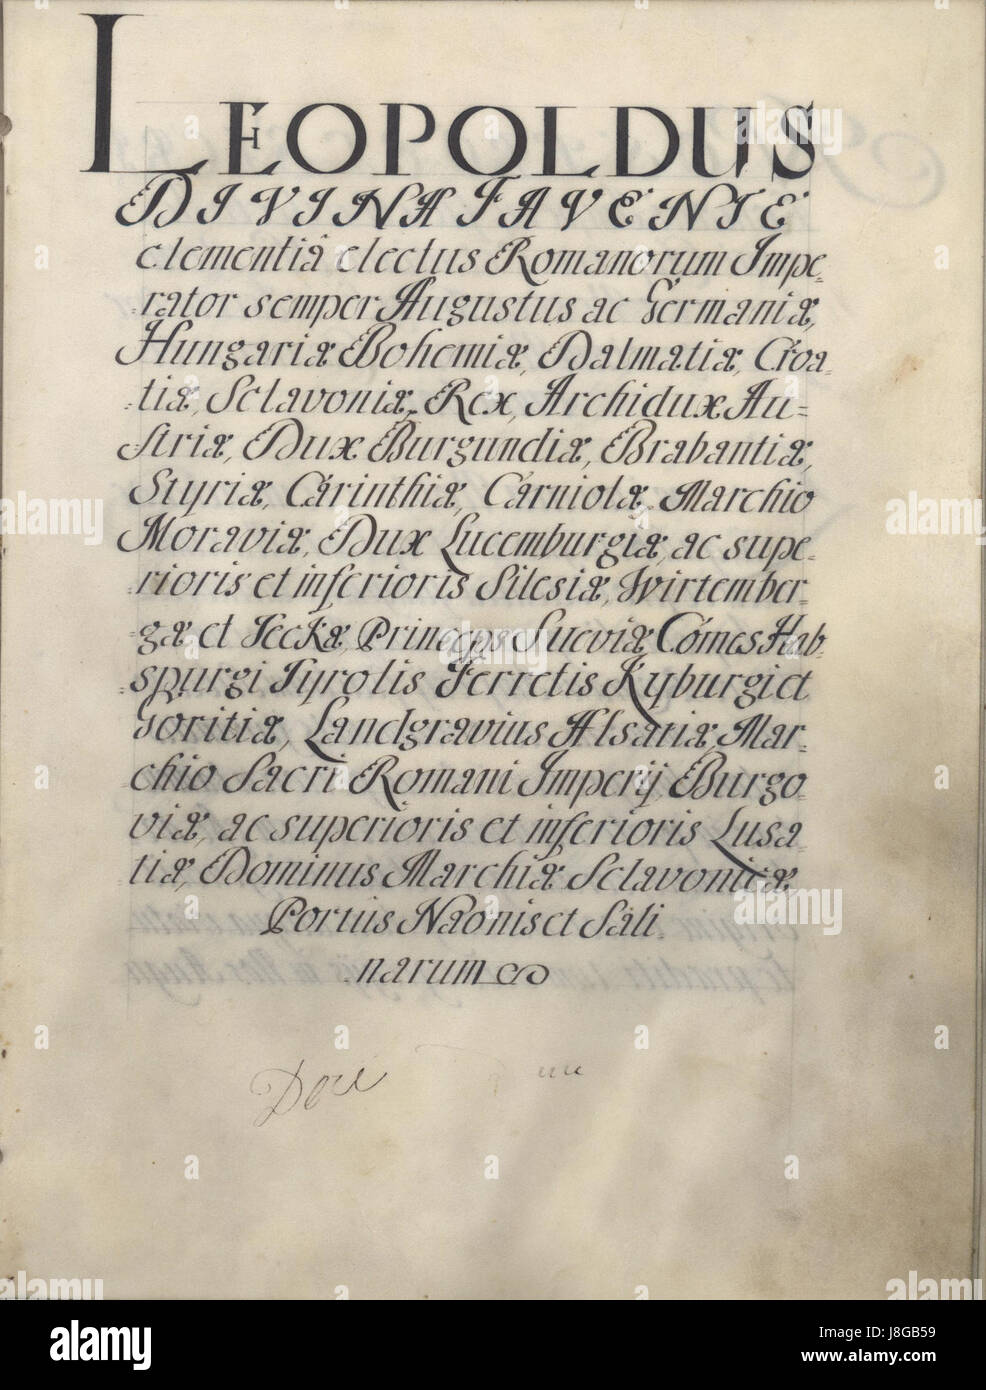 LEOPOLDUS
DIVINA FAVENTE
clementiâ electus Romanorum Impe=
=rator semper Augustus ac Germaniæ,
Hungariæ Bohemiæ, Dalmatiæ, Croa=
=tiæ, Sclavoniæ, Rex, Archidux Au=
striæ, Dux Burgundiæ, Brabantiæ,
Styriæ, Carinthiæ, Carniolæ, Marchio
Moraviæ, Dux Lucemburgiæ, ac supe=
=rioris et inferioris Silesiæ, Wirtember=
=gæ et Teckæ, Princeps Sueviæ, Comes Hab=
=spurgi Tyrolis Ferretis Kyburgi et
Goritiæ, Landgravius Alsatiæ, Mar=
=chio Sacri Romani Imperij Burgo=
viæ, ac superioris et inferioris Lusa=
=tiæ, Dominus Marchiæ Sclavonicæ,
Portus Naonis et Sali=
=narum
alamy
Image ID: J8GB59
www.alamy.com